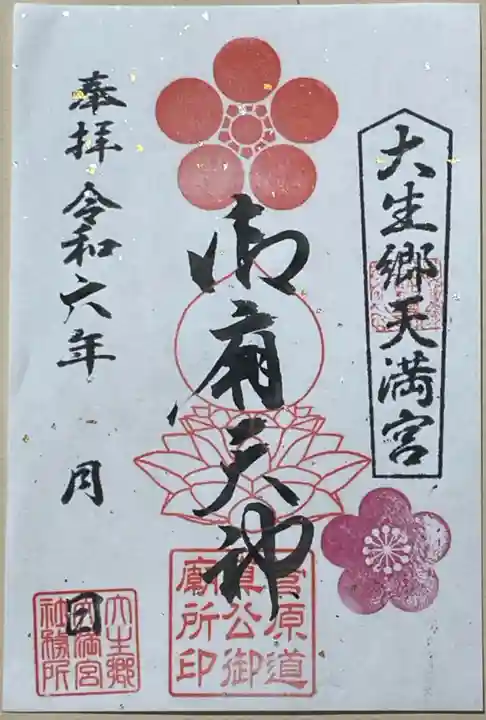 大生郷天満宮
御廟天神
菅原道
真公御
廟所印
奉拝 令和六年 月 日
大生郷
天満宮
社務所